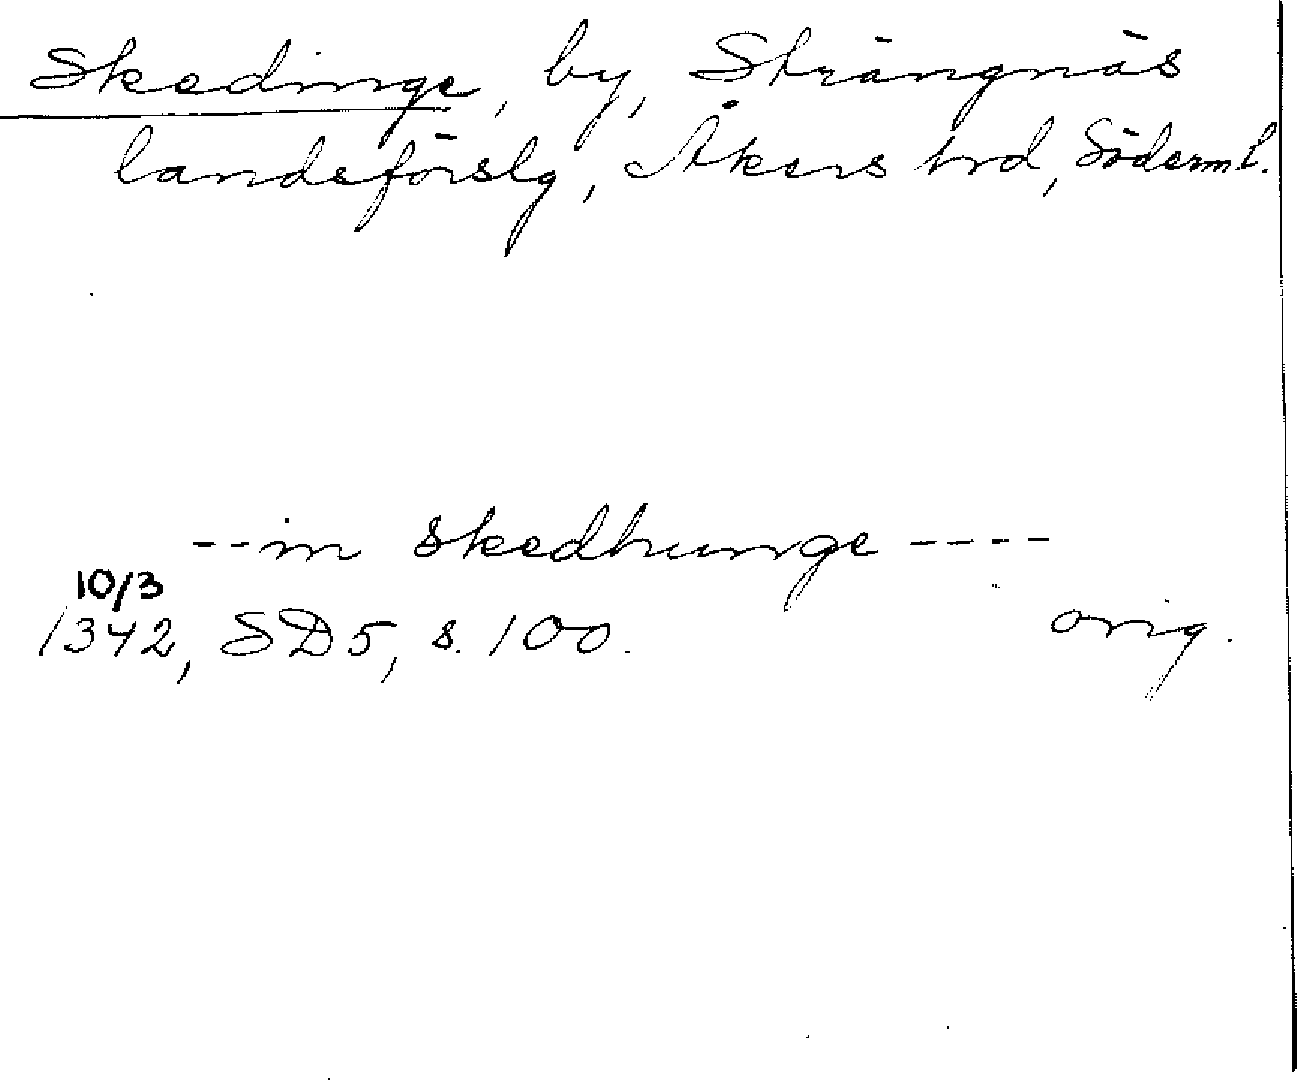 Skedinge, by, Strängnäs
landsförslg, Åkers hrd, Söderml.
--in skedhunge ----
10/3
1342, SD5, s. 100.
orig.